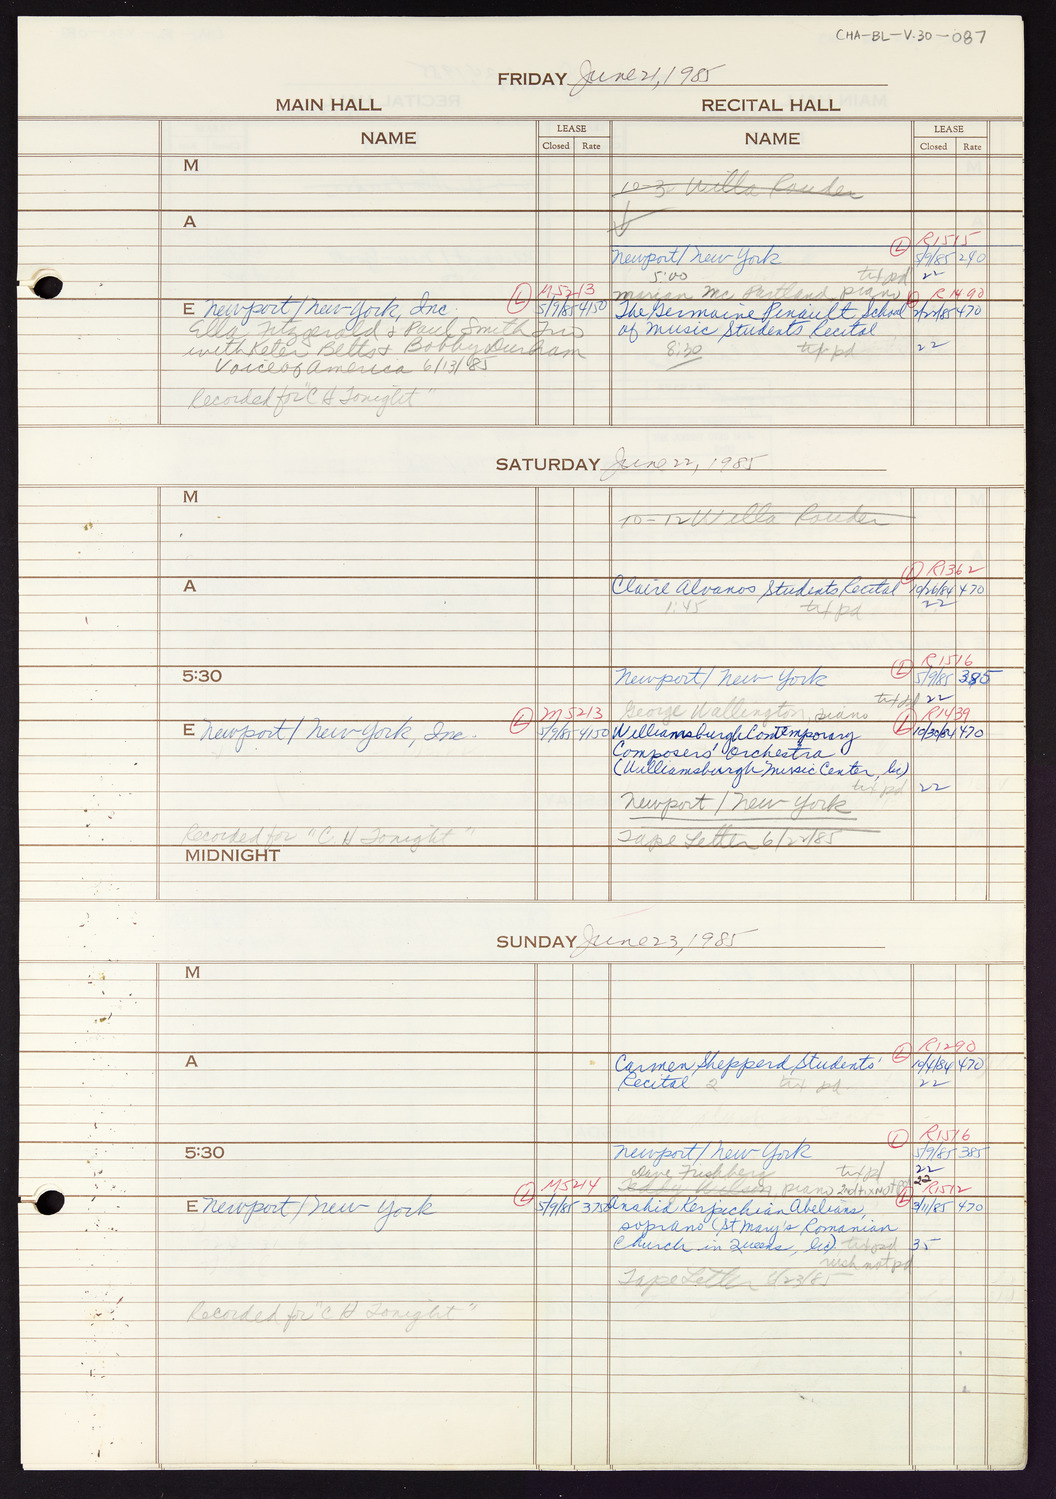 CHA-BL-V.30-087
FRIDAY June 21, 1985
MAIN HALL RECITAL HALL
NAME LEASE Closed Rate NAME LEASE Closed Rate
M
10-3 Willa Rouder
A
R1515
Newport/New York 5/9/85 240
5:00 tix pd 22
Marian McPartland, piano
M5213 R1490
E Newport/New York, Inc. 5/9/85 4150 The Germaine Pinault School 470
Ella Fitzgerald & Paul Smith Trio of Music Students Recital
with Keter Betts & Bobby Durham 8:30 tix pd 22
Voice of America 6/13/85
Recorded for "C H Tonight"
SATURDAY June 22, 1985
M
10-12 Willa Rouder
R1362
A Claire Alvanos Students Recital 10/26/84 470
1:45 tix pd 22
R1516
5:30 Newport/New York 5/9/85 385
tix pd 22
George Wallington, piano
M5213 R1439
E Newport/New York, Inc. 5/9/85 4150 Williamsburgh Contemporary 10/30/84 470
Composers' Orchestra
(Williamsburgh Music Center, Inc)
tix pd 22
Newport/New York
Recorded for "C H Tonight" Tape Letter 6/22/85
MIDNIGHT
SUNDAY June 23, 1985
M
R1290
A Carmen Shepperd Students' 10/4/84 470
Recital 2 tix pd. 22
R1516
5:30 Newport/New York 5/9/85 385
Dave Frishberg tix pd 22
Teddy Wilson, piano 2nd tix not pd 22
M5214 R1512
E Newport/New York 5/9/85 3750 Anahid Kerpichian Abelians, 3/11/85 470
soprano (St Mary's Romanian
Church in Queens, Inc) tix pd 35
rush not pd
Tape Letter 6/23/85
Recorded for "C H Tonight"